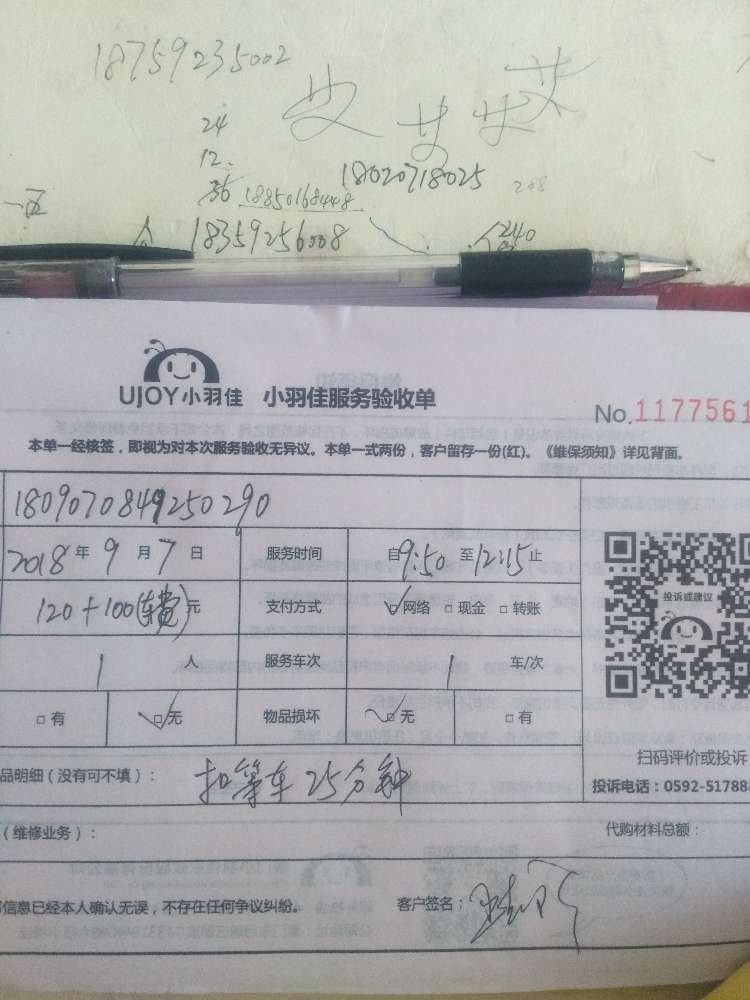 18759235002
艾 艾 艾 艾
24
12
36 18850168448 18020718025 288
一区
18359256008 240
UJOY小羽佳 小羽佳服务验收单
No. 1177561
本单一经核签，即视为对本次服务验收无异议。本单一式两份，客户留存一份(红)。《维保须知》详见背面。
180907084250290
2018 年 9 月 7 日 服务时间 自 9:50 至 12:15 止
120+100(车费) 元 支付方式 ☑网络 □现金 □转账
投诉或建议
1 人 服务车次 1 车/次
□有 ☑无 物品损坏 ☑无 □有
扫码评价或投诉
品明细（没有可不填）： 扣等车25分钟
投诉电话：0592-517888
（维修业务）： 代购材料总额：
信息已经本人确认无误，不存在任何争议纠纷。 客户签名：